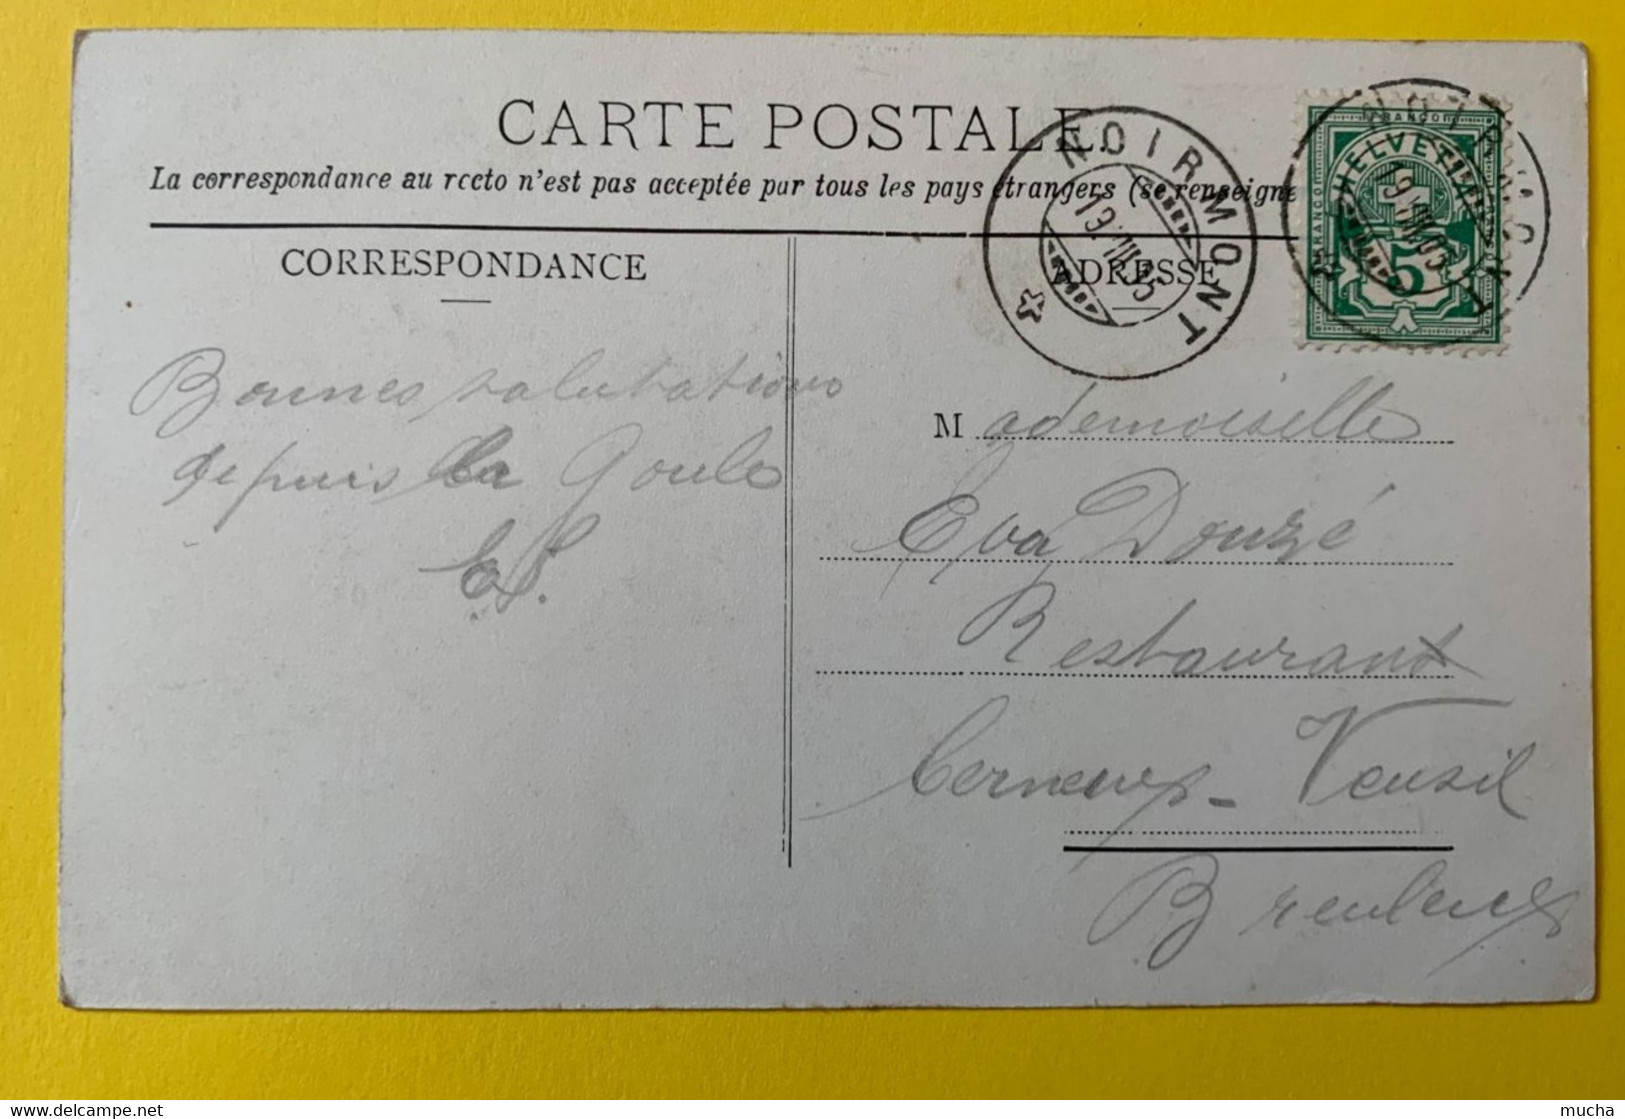 CARTE POSTALE
La correspondance au recto n'est pas acceptée par tous les pays étrangers (se renseigne
CORRESPONDANCE
ADRESSE
NOIRMONT
19.VIII.05
NOIRMONT
19.VIII.05
FRANCO
HELVETIA
FRANCO
5
Bonnes salutations
depuis la Goule
Mademoiselle
Eva Douzé
Restaurant
Cerneux-Veusil
Breuleux
delcampe.net
mucha